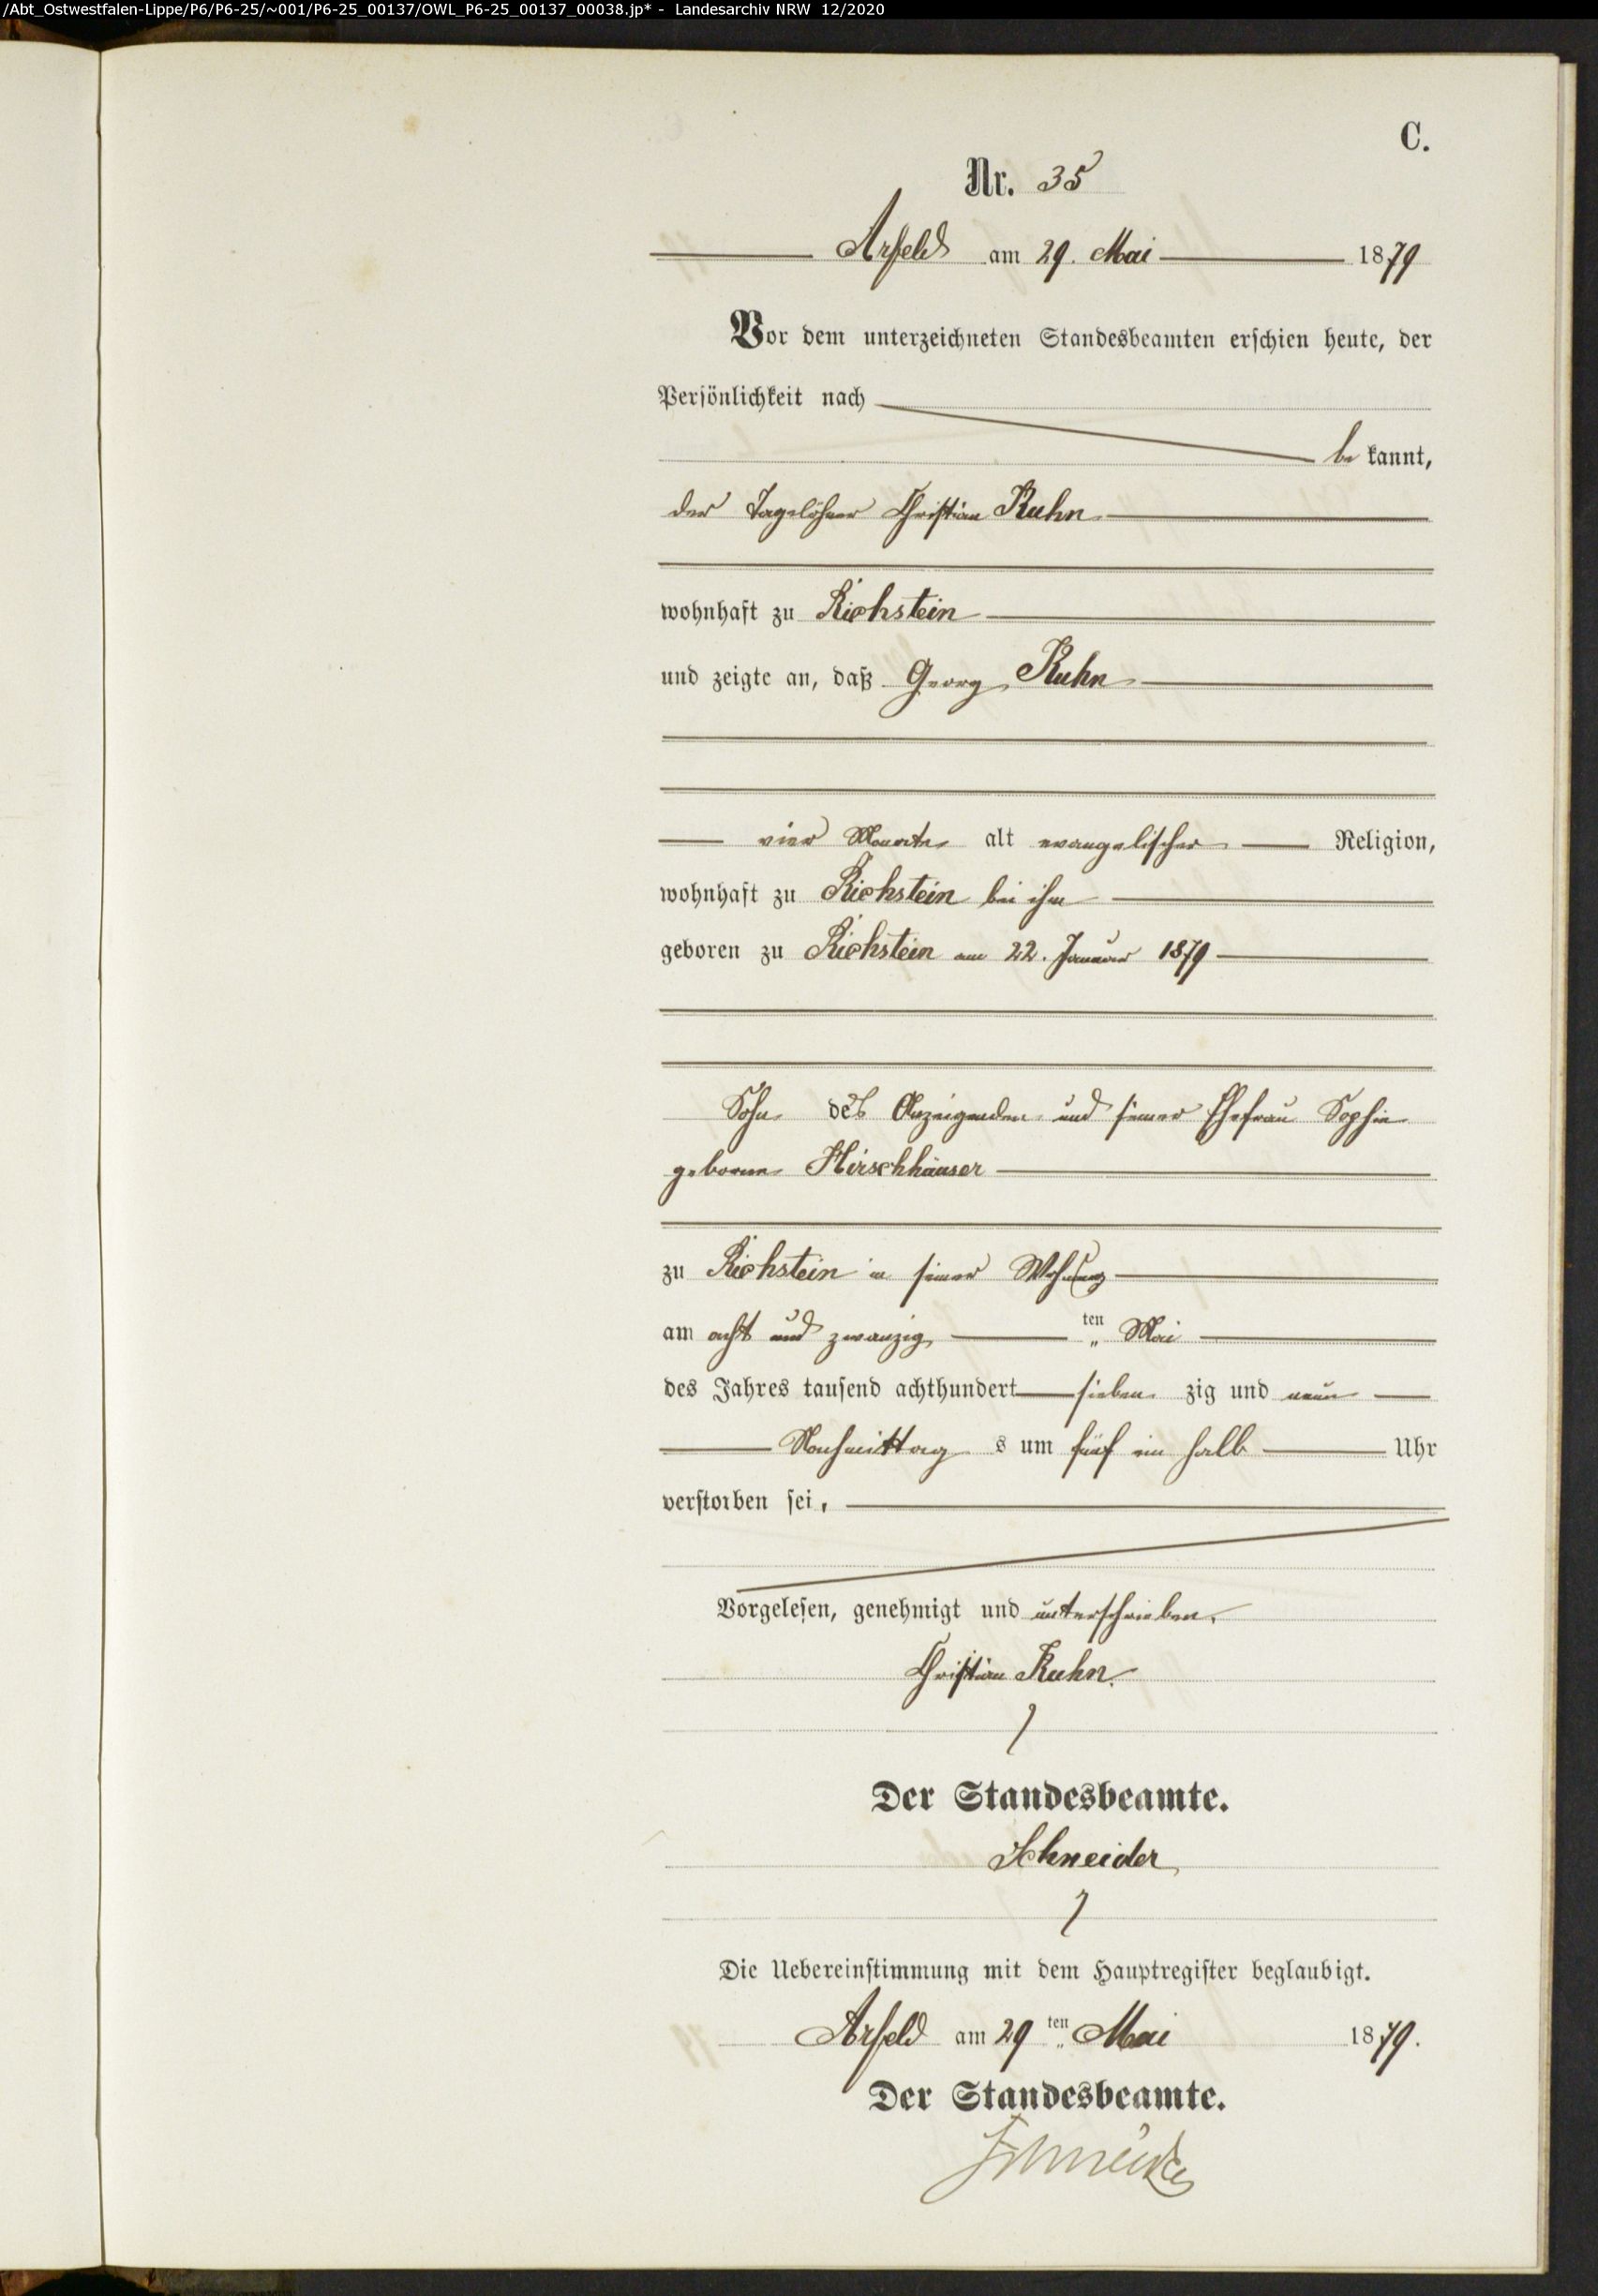 /Abt_Ostwestfalen-Lippe/P6/P6-25/~001/P6-25_00137/OWL_P6-25_00137_00038.jp* - Landesarchiv NRW 12/2020
C.
Nr. 35
Arfeld am 29. Mai 1879
Vor dem unterzeichneten Standesbeamten erschien heute, der
Persönlichkeit nach
be kannt,
der Tagelöhner Christian Kuhn
wohnhaft zu Richstein
und zeigte an, daß Georg Kuhn
vier Monate alt evangelischer Religion,
wohnhaft zu Richstein bei ihm
geboren zu Richstein am 22. Januar 1879
Sohn des Anzeigenden und seiner Ehefrau Sophie
geborne Hirschhäuser
zu Richstein in seiner Wohnung
am acht und zwanzig ten Mai
des Jahres tausend achthundert sieben zig und neun
Nachmittag s um fünf ein halb Uhr
verstorben sei,
Vorgelesen, genehmigt und unterschrieben.
Christian Kuhn.
Der Standesbeamte.
Schneider
Die Uebereinstimmung mit dem Hauptregister beglaubigt.
Arfeld am 29 ten Mai 1879.
Der Standesbeamte.
Schneider